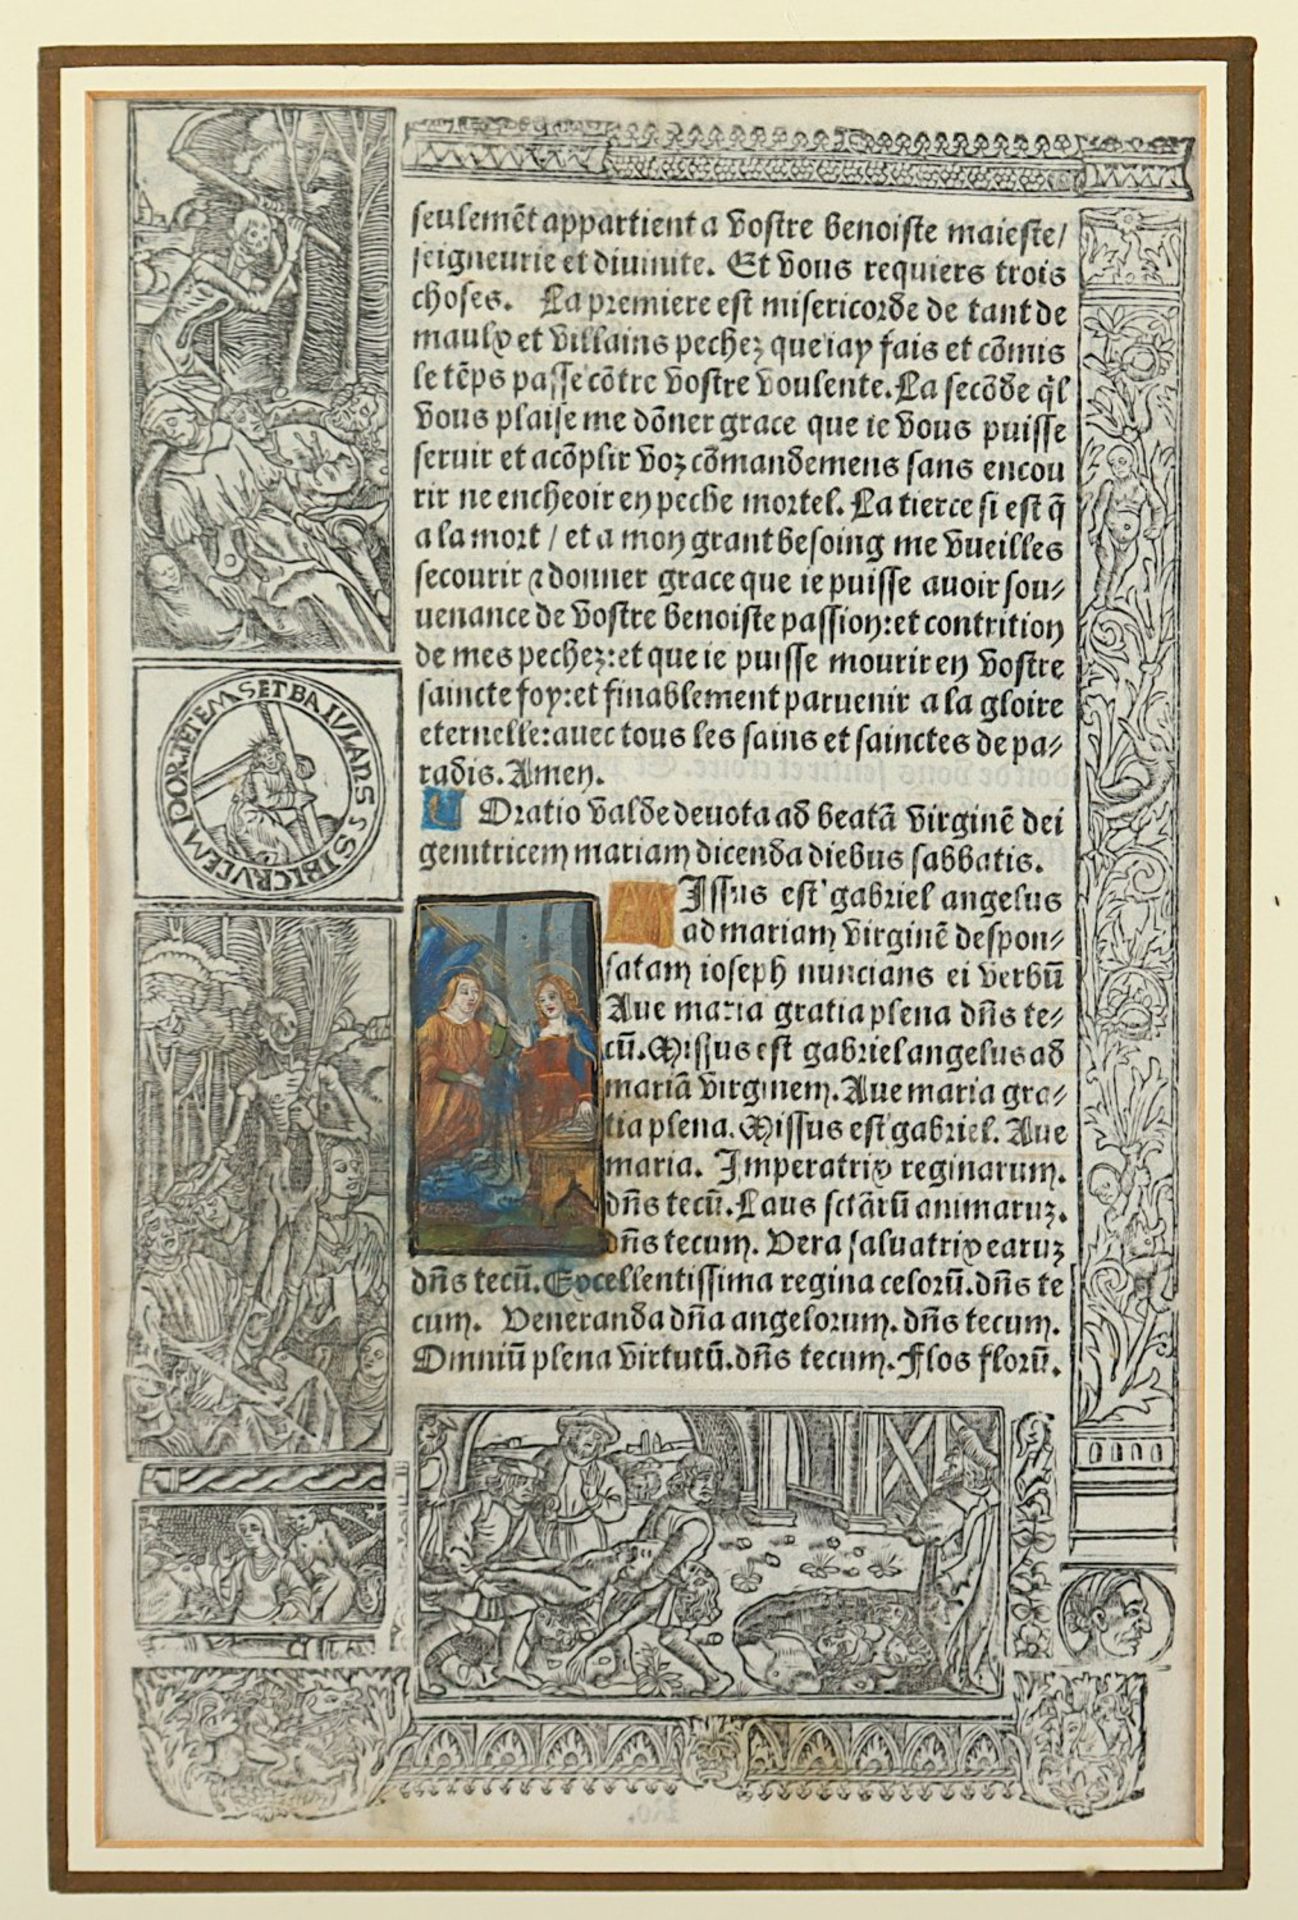 seulemēt appartient a vostre benoiste maieste/
seigneurie et diuinite. Et vous requiers trois
choses. La premiere est misericorde de tant de
maulx et villains pechez que iay fais et cōmis
le tēps passe cōtre vostre voulente. La secōde q̄l
vous plaise me dōner grace que ie vous puisse
seruir et acōplir voz cōmandemens sans encou
rir ne encheoir en peche mortel. La tierce si est q̄
a la mort / et a mon grant besoing me vueilles
secourir ⁊ donner grace que ie puisse auoir sou⸗
uenance de vostre benoiste passion: et contrition
de mes pechez: et que ie puisse mourir en vostre
saincte foy: et finablement paruenir a la gloire
eternelle: auec tous les sains et sainctes de pa⸗
radis. Amen.
Oratio valde deuota ad beatā virginē dei
genitricem mariam dicenda diebus sabbatis.
MIssus est gabriel angelus
ad mariam virginē despon⸗
satam ioseph nuncians ei verbū
Aue maria gratia plena dn̄s te⸗
cū. Missus est gabriel angelus ad
mariā virginem. Aue maria gra⸗
tia plena. Missus est gabriel. Aue
maria. Imperatrix reginarum.
dn̄s tecū. Laus sctārū animaruʒ.
dn̄s tecum. Vera saluatrix earuʒ
dn̄s tecū. Excellentissima regina celorū. dn̄s te
cum. Veneranda dn̄a angelorum. dn̄s tecum.
Omniū plena virtutū. dn̄s tecum. Flos florū.
ET BAIVLANS SIBI CRVCEM PORTET EMS